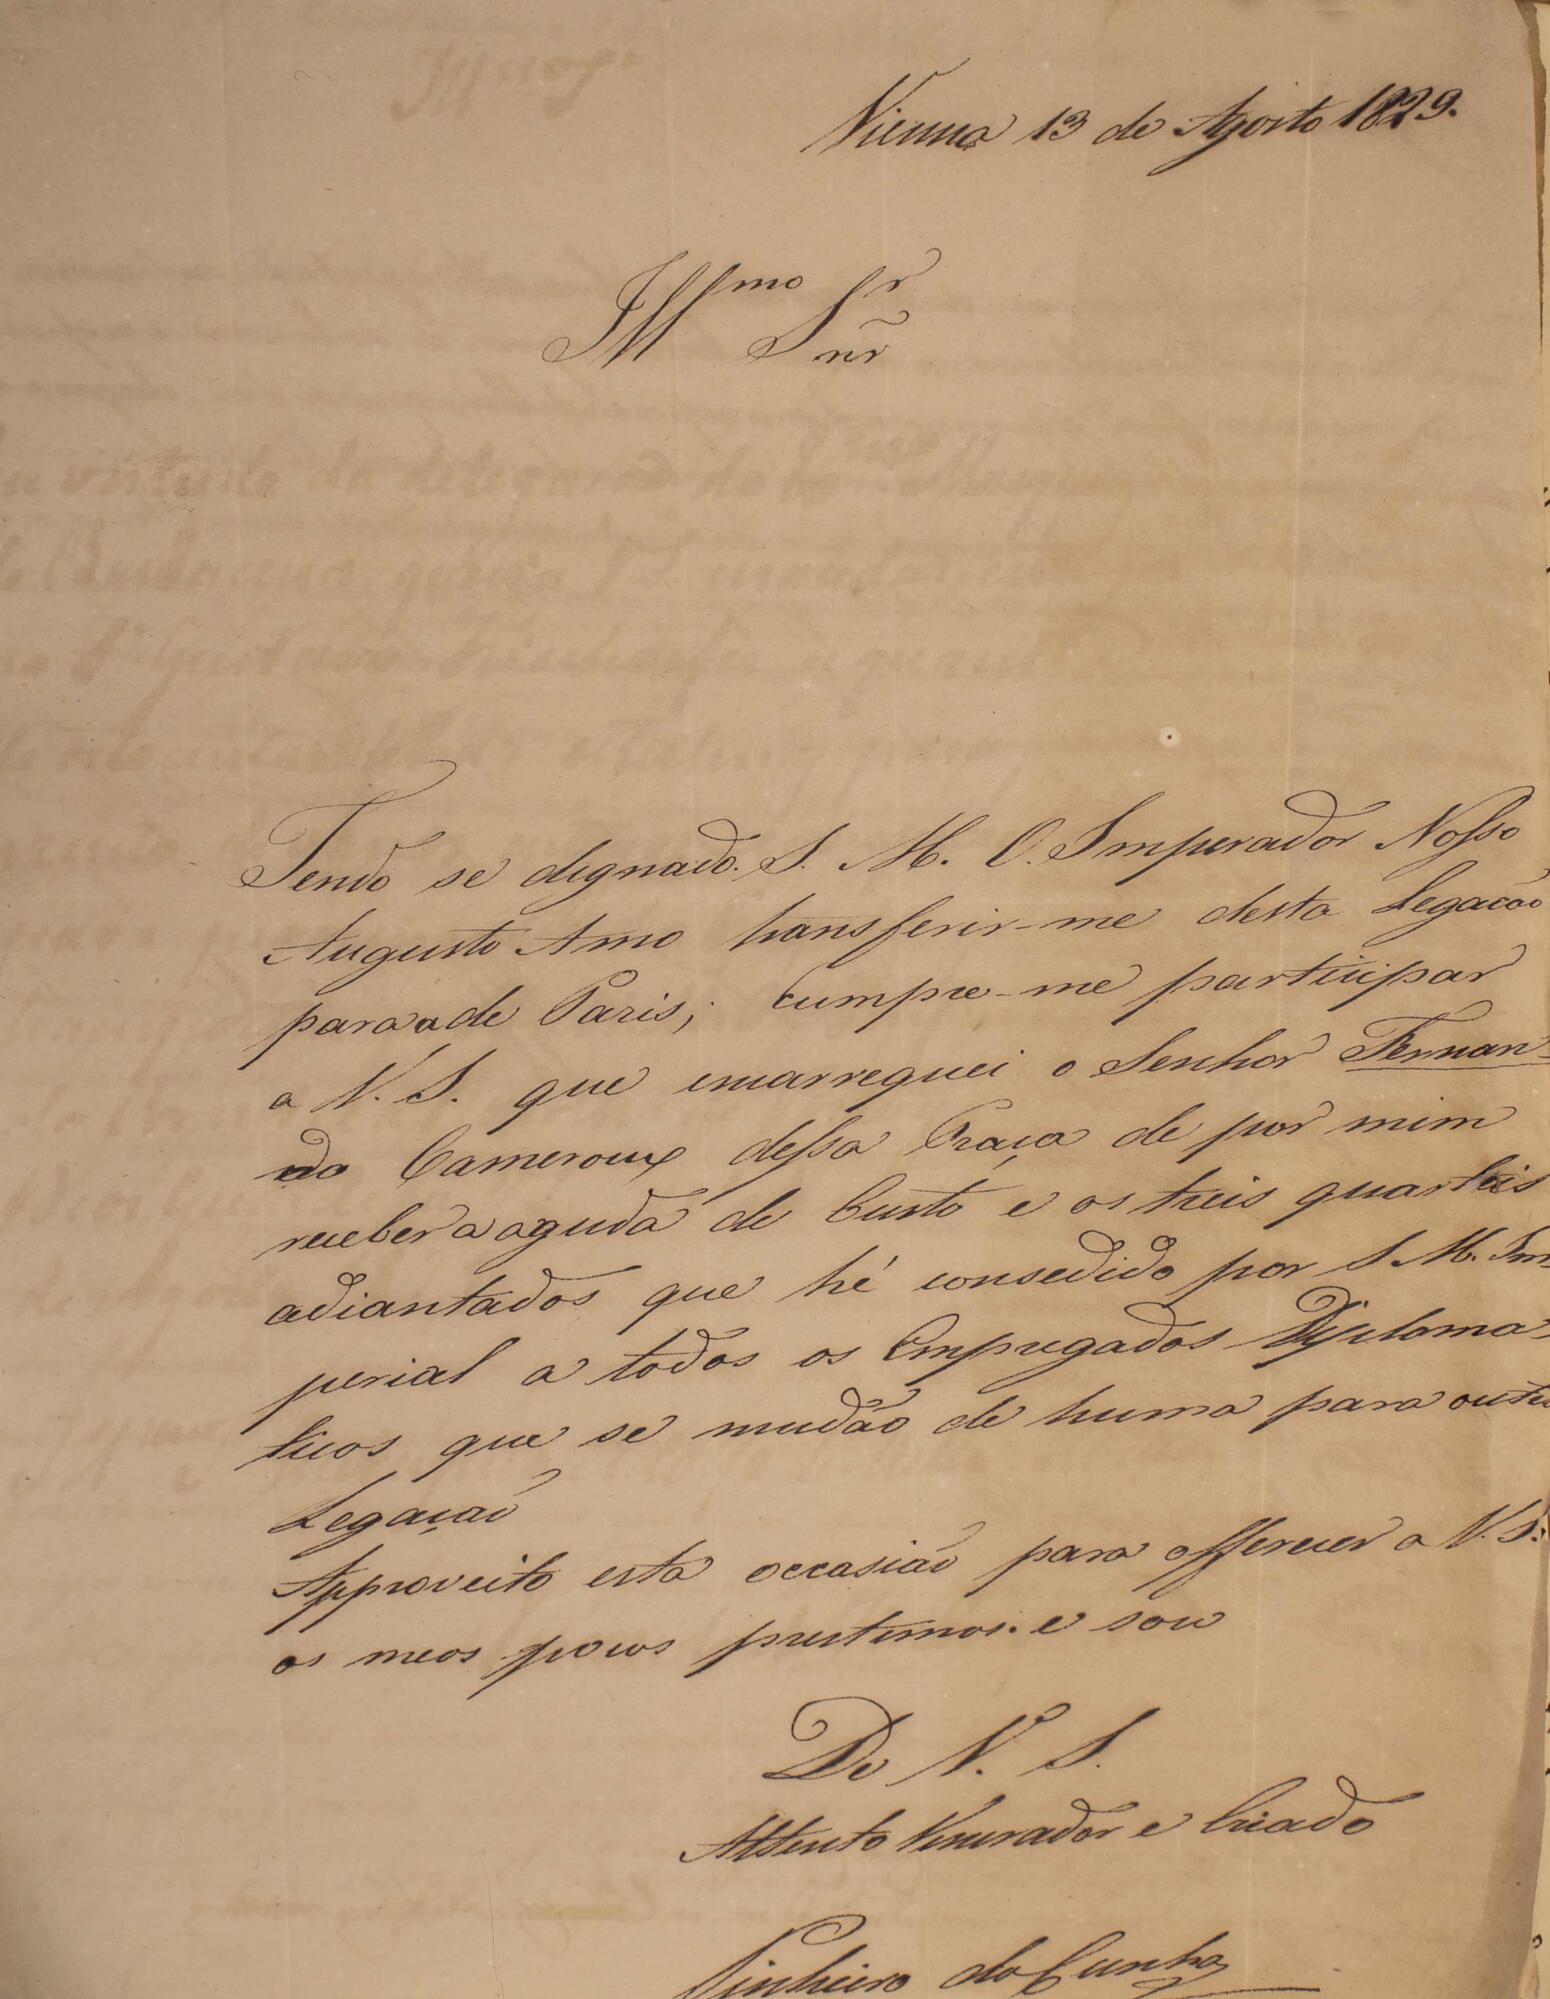 Vienna 13 de Agosto 1829.
Illmo Snr
Tendo se dignado. S. M. O. Imperador Nosso
Augusto Amo transferir-me desta Legacão
para a de Paris; cumpre-me participar
a V. S. que emcarreguei o Senhor Fernan-
do Cameroux dessa Praça de por mim
receber a aguda de Custo e os treis quarteis
adiantados que hé consedido por S. M. Im-
perial a todos os Empregados Diploma-
ticos que se mudão de huma para outra
Legação
Approveito esta occasião para offerecer a V. S:
os meos pocos prestimos. e sou
De V. S.
Attento Venerador e Criado
Pinheiro da Cunha